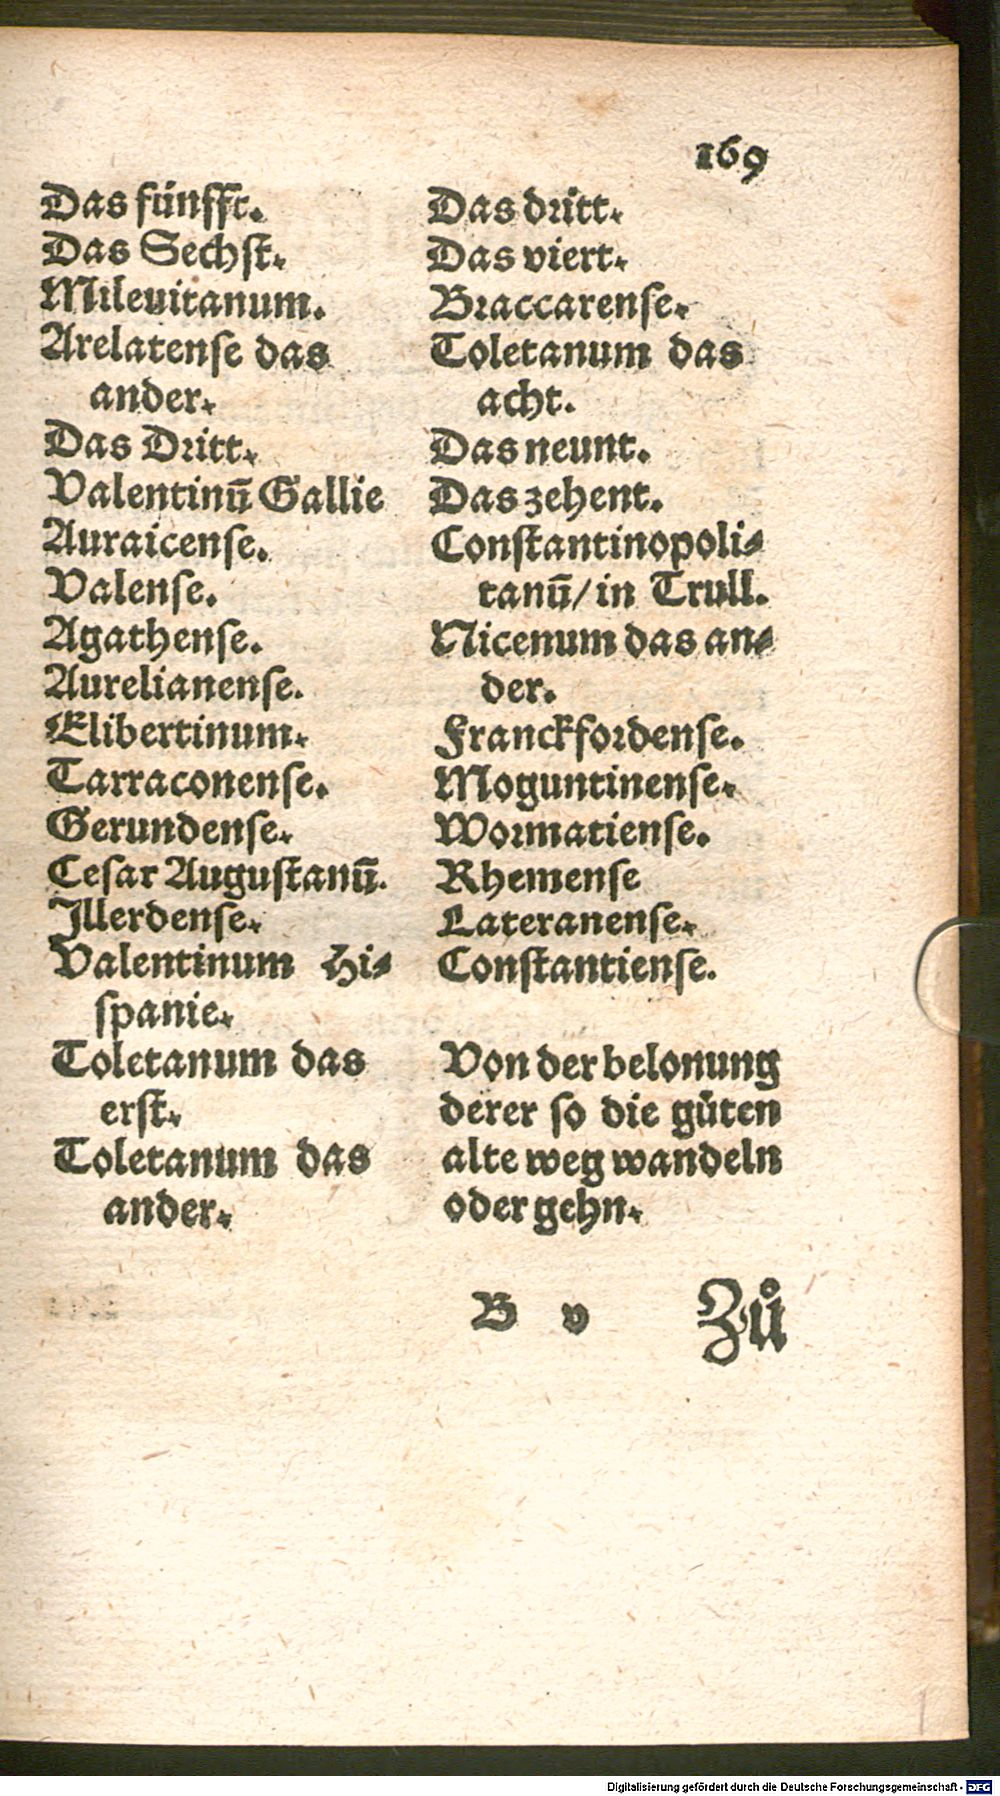 169
Das fünfft.
Das Sechst.
Mileuitanum.
Arelatense das
ander.
Das Dritt.
Valentinū Gallie
Auraicense.
Valense.
Agathense.
Aurelianense.
Elibertinum.
Tarraconense.
Gerundense.
Cesar Augustanū.
Illerdense.
Valentinum Hi-
spanie.
Toletanum das
erst.
Toletanum das
ander.
Das dritt.
Das viert.
Braccarense.
Toletanum das
acht.
Das neunt.
Das zehent.
Constantinopoli-
tanū/in Trull.
Nicenum das an-
der.
Franckfordense.
Moguntinense.
Wormatiense.
Rhemense
Lateranense.
Constantiense.
Von der belonung
derer so die gůten
alte weg wandeln
oder gehn.
B v Zů
Digitalisierung gefördert durch die Deutsche Forschungsgemeinschaft - DFG